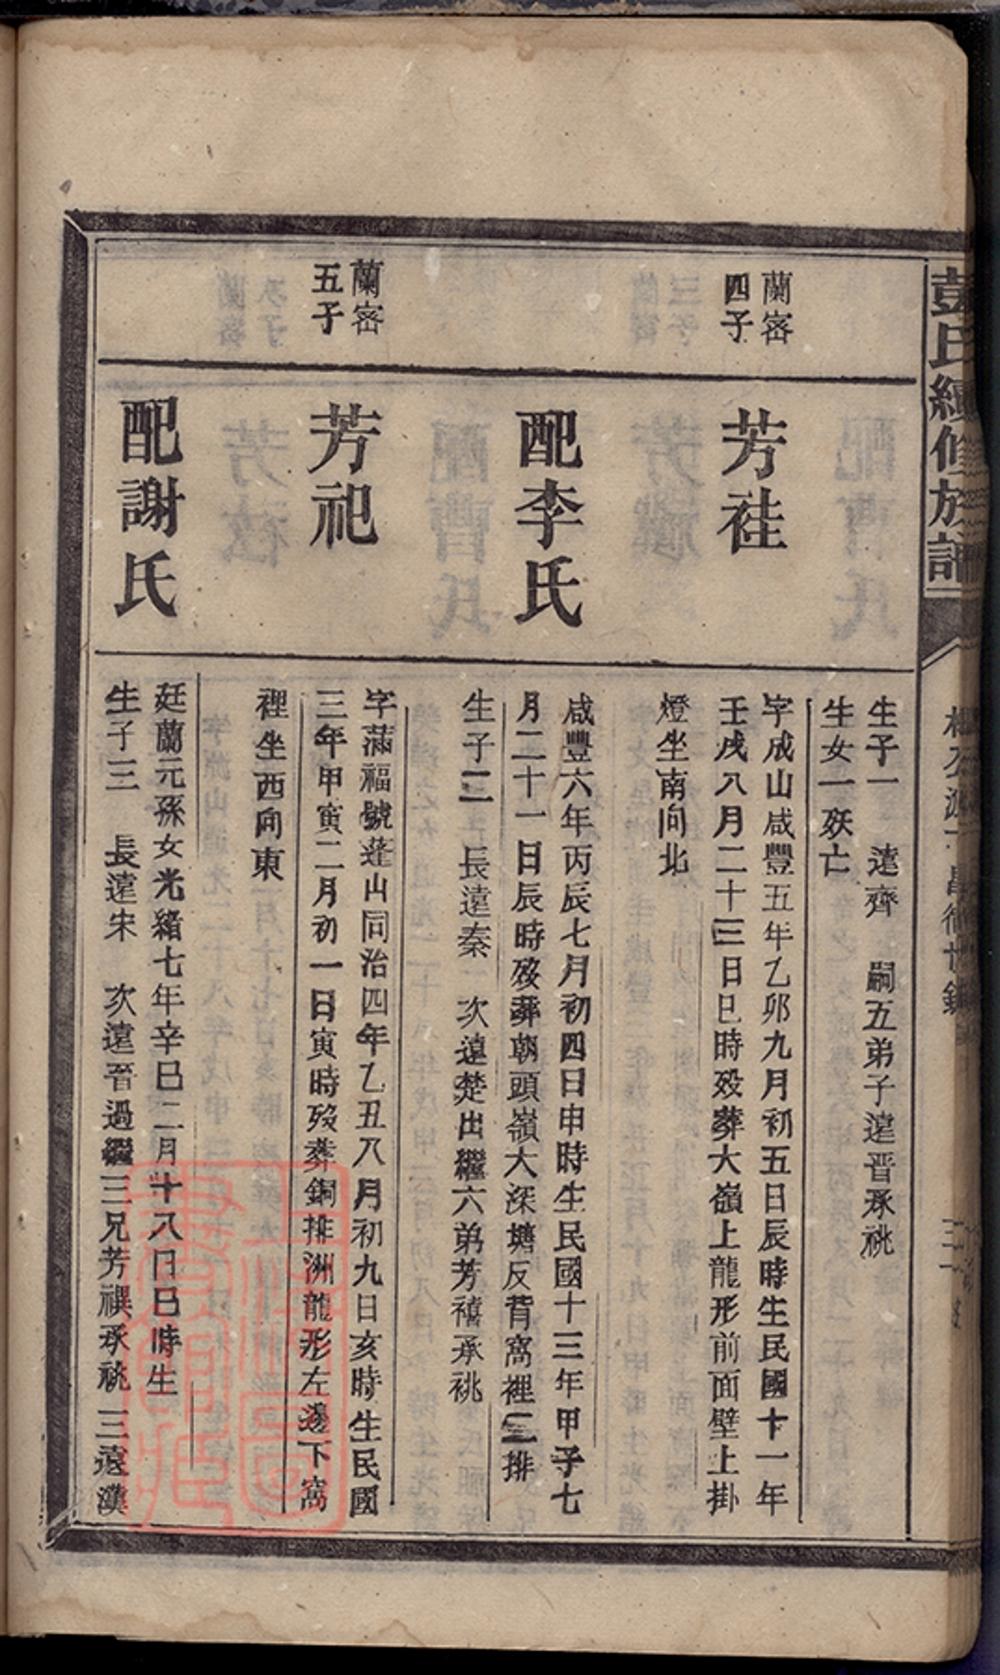 彭氏續修族譜
生子一　遠齊　嗣五弟子遠晋承祧
生女一殀亡
蘭宻
四子
芳祍
字成山咸豐五年乙卯九月初五日辰時生民國十一年
壬戌八月二十三日巳時殁葬大嶺上龍形前面壁上掛
燈坐南向北
配李氏
咸豐六年丙辰七月初四日申時生民國十三年甲子七
月二十一日辰時殁葬朝頭嶺大深塘反背窩裡二排
生子二　長遠秦　次遠楚出繼六弟芳禧承祧
蘭宻
五子
芳祀
字滿福號蓬山同治四年乙丑八月初九日亥時生民國
三年甲寅二月初一日寅時殁葬銅排洲龍形左邊下窩
裡坐西向東
配謝氏
廷蘭元孫女光緒七年辛巳二月十八日巳時生
生子三　長遠宋　次遠晋過繼三兄芳禩承祧　三遠漢